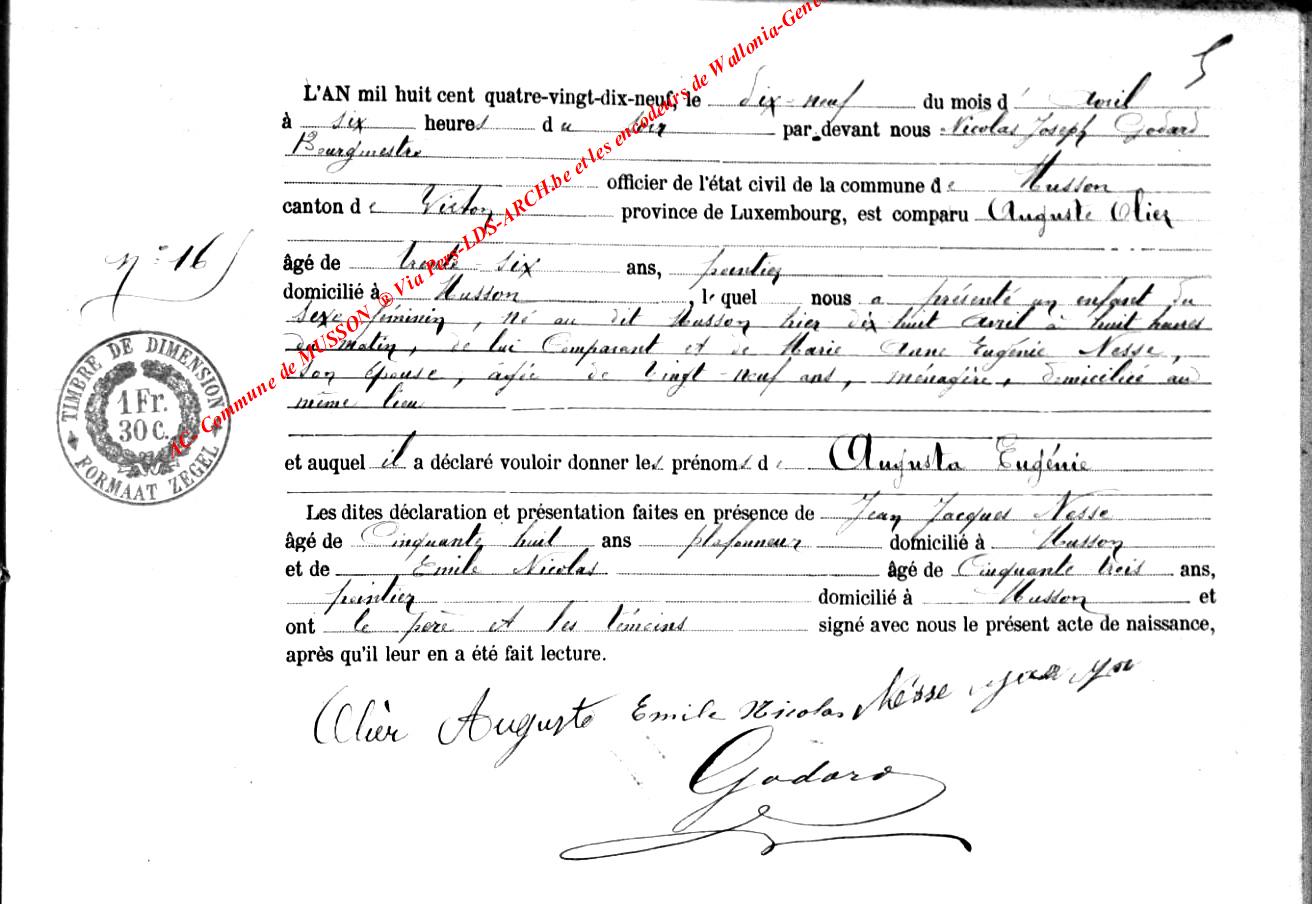 5
L'AN mil huit cent quatre-vingt-dix-neuf, le dix-neuf du mois d' avril
à six heures du soir par-devant nous Nicolas Joseph Godard
Bourgmestre
officier de l'état civil de la commune de Musson
canton de Virton province de Luxembourg, est comparu Auguste Olier
n° 16
âgé de trente-six ans, peintier
domicilié à Musson, lequel nous a présenté un enfant du
sexe féminin, né au dit Musson hier dix huit avril à huit heures
du matin, de lui Comparant et de Marie Anne Eugénie Nesse,
son épouse, agée de vingt-neuf ans, ménagère, domiciliée au
même lieu
et auquel il a déclaré vouloir donner les prénoms de Augusta Eugénie
Les dites déclaration et présentation faites en présence de Jean Jacques Nesse
âgé de Cinquante huit ans plafonneur domicilié à Musson
et de Emile Nicolas âgé de Cinquante trois ans,
peintier domicilié à Musson et
ont le père et les témoins signé avec nous le présent acte de naissance,
après qu'il leur en a été fait lecture.
Olier Auguste Emile Nicolas Nésse
Godard
TIMBRE DE DIMENSION
1 Fr.
30 C.
FORMAAT ZEGEL
AC- Commune de MUSSON ® Via Pers-LDS-ARCH.be et les encodeurs de Wallonia-Gene